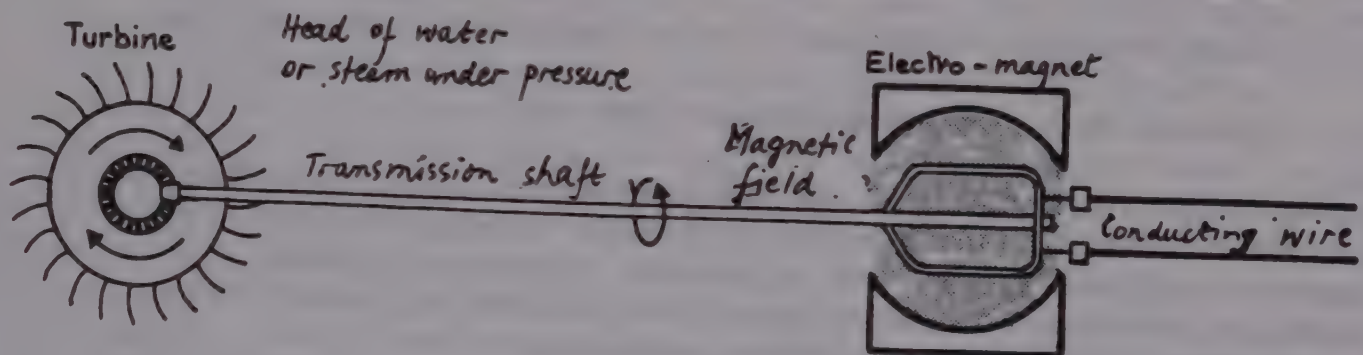 Turbine
Head of water
or steam under pressure
Electro-magnet
Transmission shaft
Magnetic
field
Conducting wire